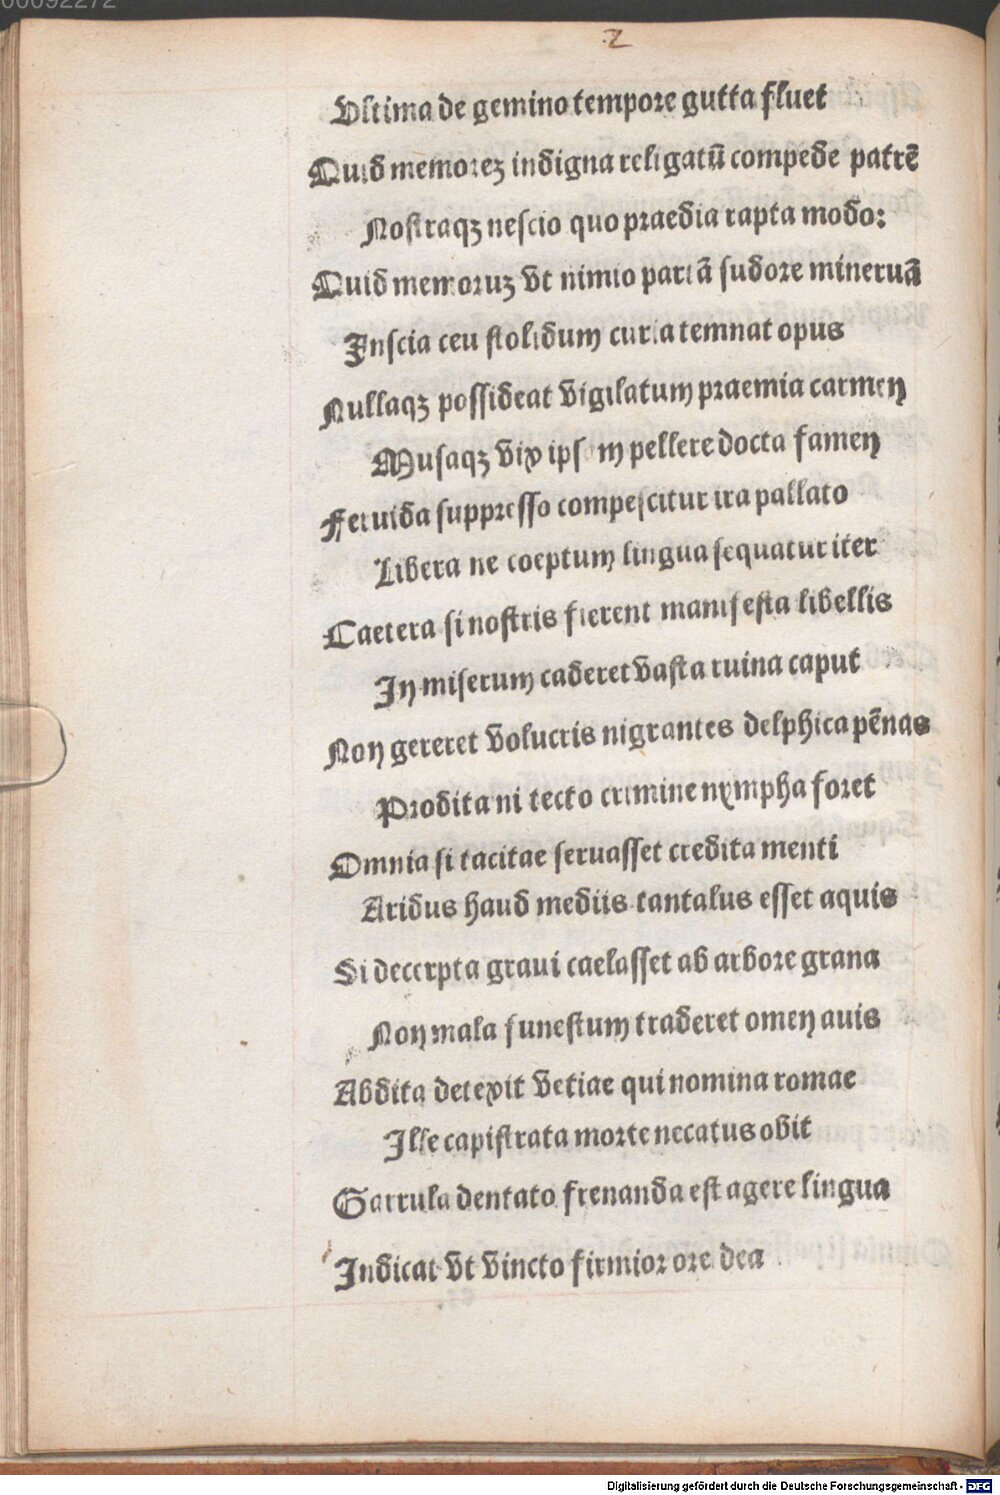 00092272
2
Vltima de gemino tempore gutta fluet
Quid memorez indigna religatū compede patrē
Nostraqz nescio quo praedia rapta modo:
Quid memoruz vt nimio partā sudore mineruā
Inscia ceu stolidum curia temnat opus
Nullaqz possideat vigilatum praemia carmen
Musaqz vix ips m pellere docta famen
Feruida suppresso compescitur ira pallato
Libera ne coeptum lingua sequatur iter
Caetera si nostris fierent manifesta libellis
In miserum caderet vasta ruina caput
Non gereret volucris nigrantes delphica pēnas
Prodita ni tecto crimine nympha foret
Omnia si tacitae seruasset credita menti
Aridus haud mediis tantalus esset aquis
Si decerpta graui caelasset ab arbore grana
Non mala funestum traderet omen auis
Abdita detexit vetiae qui nomina romae
Ille capistrata morte necatus obit
Garrula dentato frenanda est agere lingua
Indicat vt vincto firmior ore dea
Digitalisierung gefördert durch die Deutsche Forschungsgemeinschaft - DFG